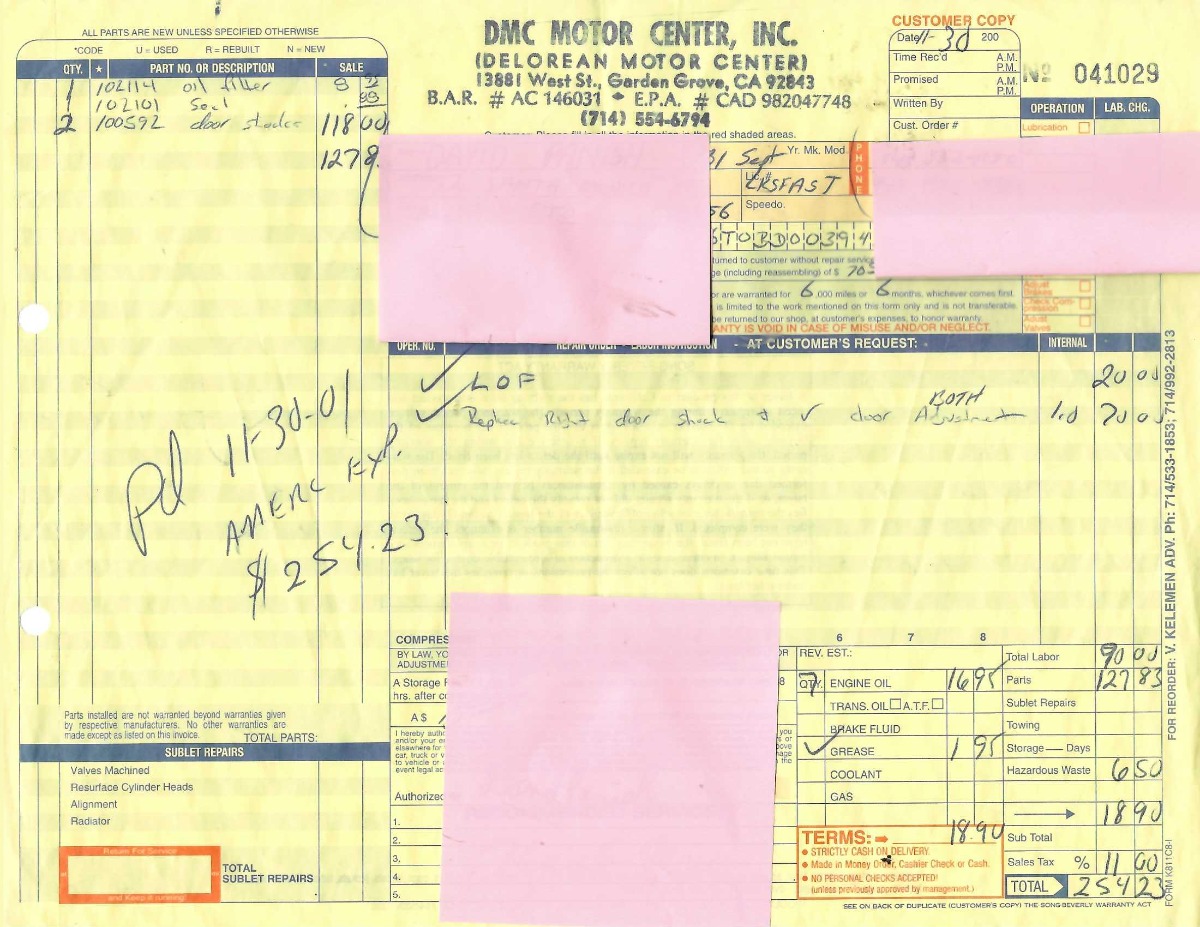 ALL PARTS ARE NEW UNLESS SPECIFIED OTHERWISE
*CODE U = USED R = REBUILT N = NEW
QTY. ★ PART NO. OR DESCRIPTION SALE
1 102114 oil filter 8 95
1 102101 seal . 88
2 100592 door shocks 118 00
127 8
DMC MOTOR CENTER, INC.
(DELOREAN MOTOR CENTER)
13881 West St., Garden Grove, CA 92843
B.A.R. # AC 146031 * E.P.A. # CAD 982047748
(714) 554-6794
red shaded areas.
CUSTOMER COPY
Date 11-30 200
Time Rec'd A.M. P.M.
Promised A.M. P.M.
Written By
Cust. Order #
Nº 041029
OPERATION LAB. CHG.
Lubrication
81 Sept Yr. Mk. Mod.
PHONE
Lic. # CRSFAST
56 Speedo.
T 0 B D 0 0 3 9 4
turned to customer without repair service
ge (including reassembling) of $ 70
or are warranted for 6 ,000 miles or 6 months, whichever comes first.
is limited to the work mentioned on this form only and is not transferable.
be returned to our shop, at customer's expenses, to honor warranty.
ANTY IS VOID IN CASE OF MISUSE AND/OR NEGLECT.
Adjust Brakes
Check Compression
Adjust Valves
OPER. NO. REPAIR ORDER - LABOR INSTRUCTION - AT CUSTOMER'S REQUEST: - INTERNAL
✓ LOF 20 00
BOTH
✓ Replace Right door shock + ✓ door Adjustment 1.0 70 00
Pd 11-30-01
AMERC EXP.
$ 254.23
FOR REORDER: V. KELEMEN ADV. Ph: 714/533-1853; 714/992-2813
FORM K811C8-I
COMPRES
BY LAW, YO
ADJUSTMEN
A Storage F
hrs. after co
A $
I hereby autho
and/or your e
elsewhere for
car, truck or v
to vehicle or a
event legal ac
Authorized
1.
2.
3.
4.
5.
6 7 8
REV. EST.:
QTY.
7 ENGINE OIL 16 95
TRANS. OIL A.T.F.
BRAKE FLUID
✓ GREASE 1 95
COOLANT
GAS
18.90
Total Labor 90 00
Parts 127 83
Sublet Repairs
Towing
Storage — Days
Hazardous Waste 6 50
18 90
Sub Total
Sales Tax % 11 00
TOTAL 254 23
TERMS:
• STRICTLY CASH ON DELIVERY.
• Made in Money Order, Cashier Check or Cash.
• NO PERSONAL CHECKS ACCEPTED!
(unless previously approved by management.)
SEE ON BACK OF DUPLICATE (CUSTOMER'S COPY) THE SONG-BEVERLY WARRANTY ACT
Parts installed are not warranted beyond warranties given
by respective manufacturers. No other warranties are
made except as listed on this invoice. TOTAL PARTS:
SUBLET REPAIRS
Valves Machined
Resurface Cylinder Heads
Alignment
Radiator
Return For Service
and Keep it running!
TOTAL
SUBLET REPAIRS